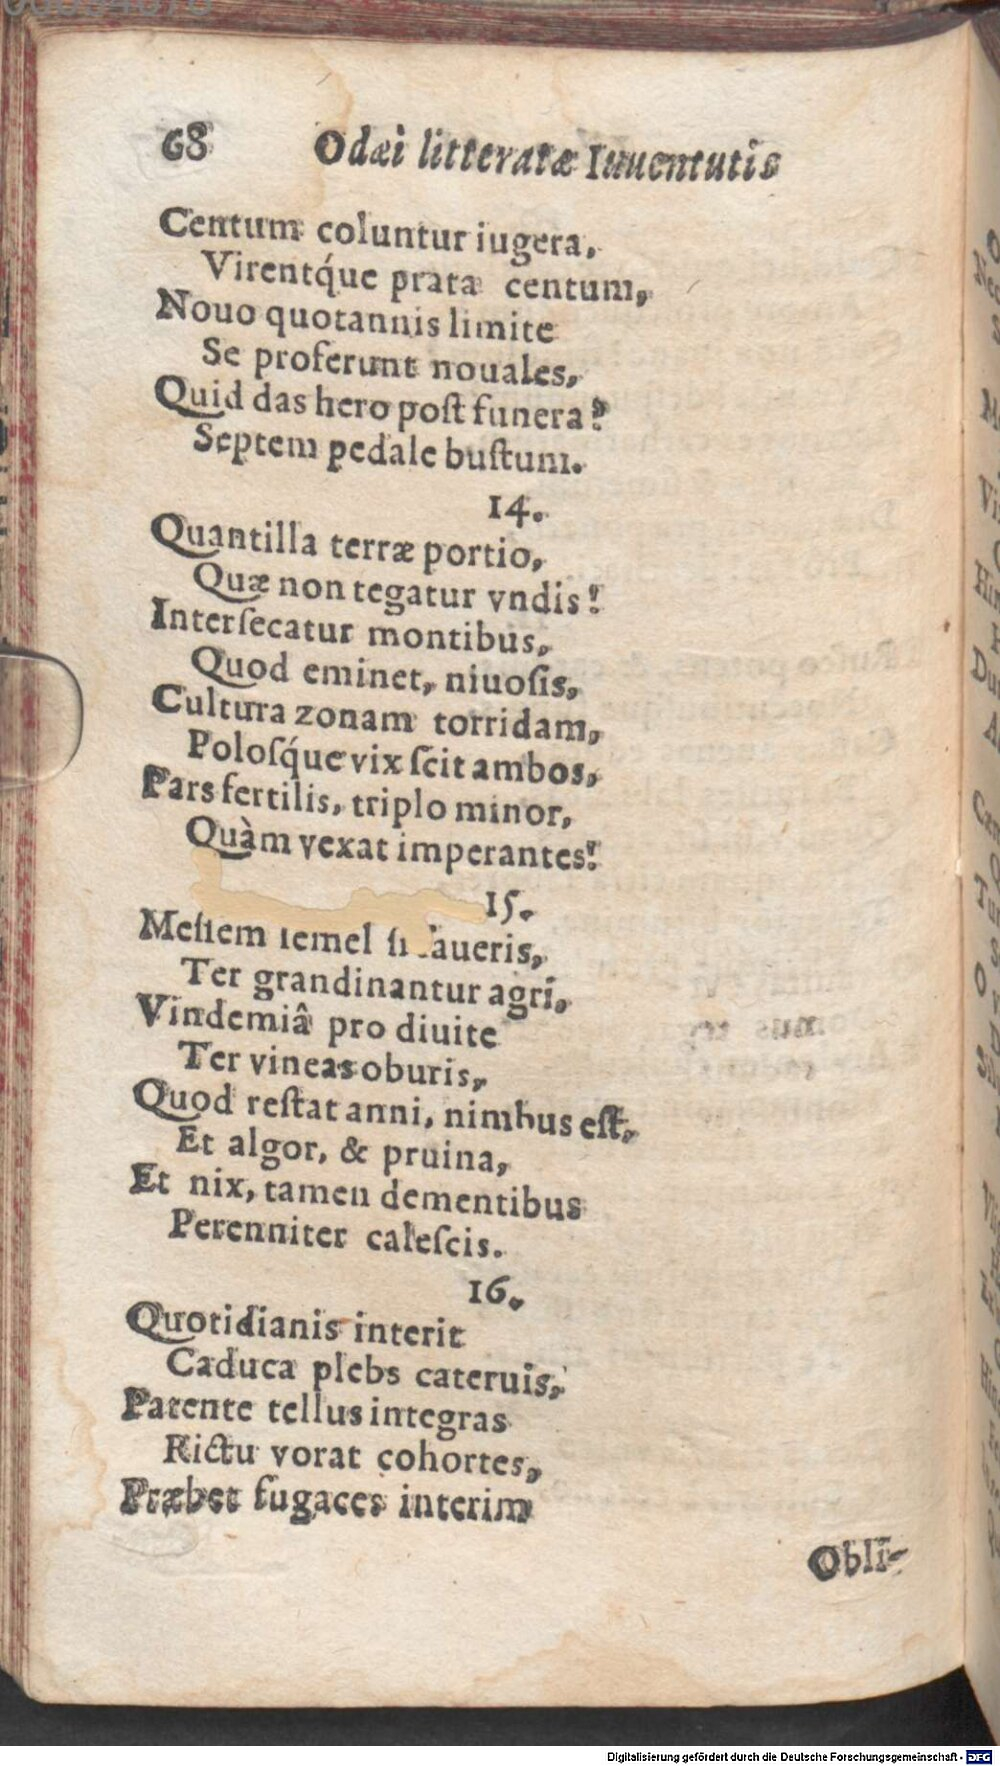 68 Odæi litteratæ Iuuentutis
Centum coluntur iugera,
Virentq́ue prata centum,
Nouo quotannis limite
Se proferunt nouales,
Quid das hero poſt funera?
Septem pedale buſtum.
14.
Quantilla terræ portio,
Quæ non tegatur vndis!
Interſecatur montibus,
Quod eminet, niuoſis,
Cultura zonam torridam,
Poloſq́ue vix ſcit ambos,
Pars fertilis, triplo minor,
Quàm vexat imperantes!
15.
Meſſem ſemel ſi faueris,
Ter grandinantur agri,
Vindemiâ pro diuite
Ter vineas oburis,
Quod reſtat anni, nimbus eſt,
Et algor, & pruina,
Et nix, tamen dementibus
Perenniter caleſcis.
16.
Quotidianis interit
Caduca plebs cateruis,
Patente tellus integras
Rictu vorat cohortes,
Præbet fugaces interim
Obli-
Digitalisierung gefördert durch die Deutsche Forschungsgemeinschaft - DFG